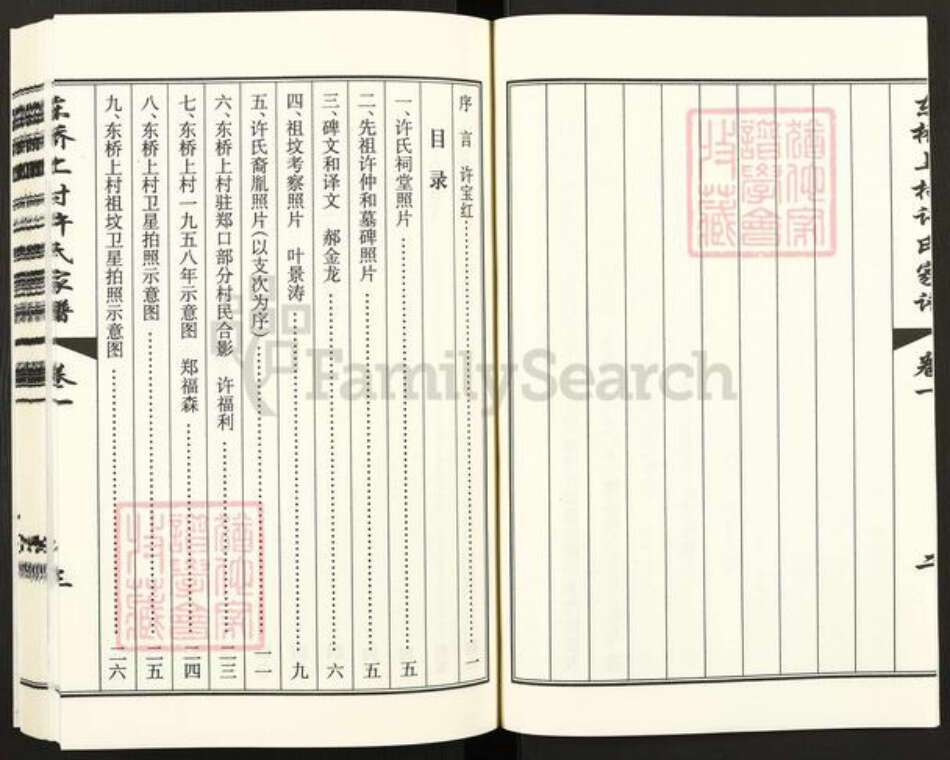 东桥上村许氏家谱 卷一 二
目录
序言 许宝红 一
一、许氏祠堂照片 五
二、先祖许仲和墓碑照片 五
三、碑文和译文 郝金龙 六
四、祖坟考察照片 叶景涛 九
五、许氏裔胤照片（以支次为序） 一一
六、东桥上村驻郑口部分村民合影 许福利 二三
七、东桥上村一九五八年示意图 郑福森 二四
八、东桥上村卫星拍照示意图 二五
九、东桥上村祖坟卫星拍照示意图 二六
东桥上村许氏家谱 卷一 三
FamilySearch